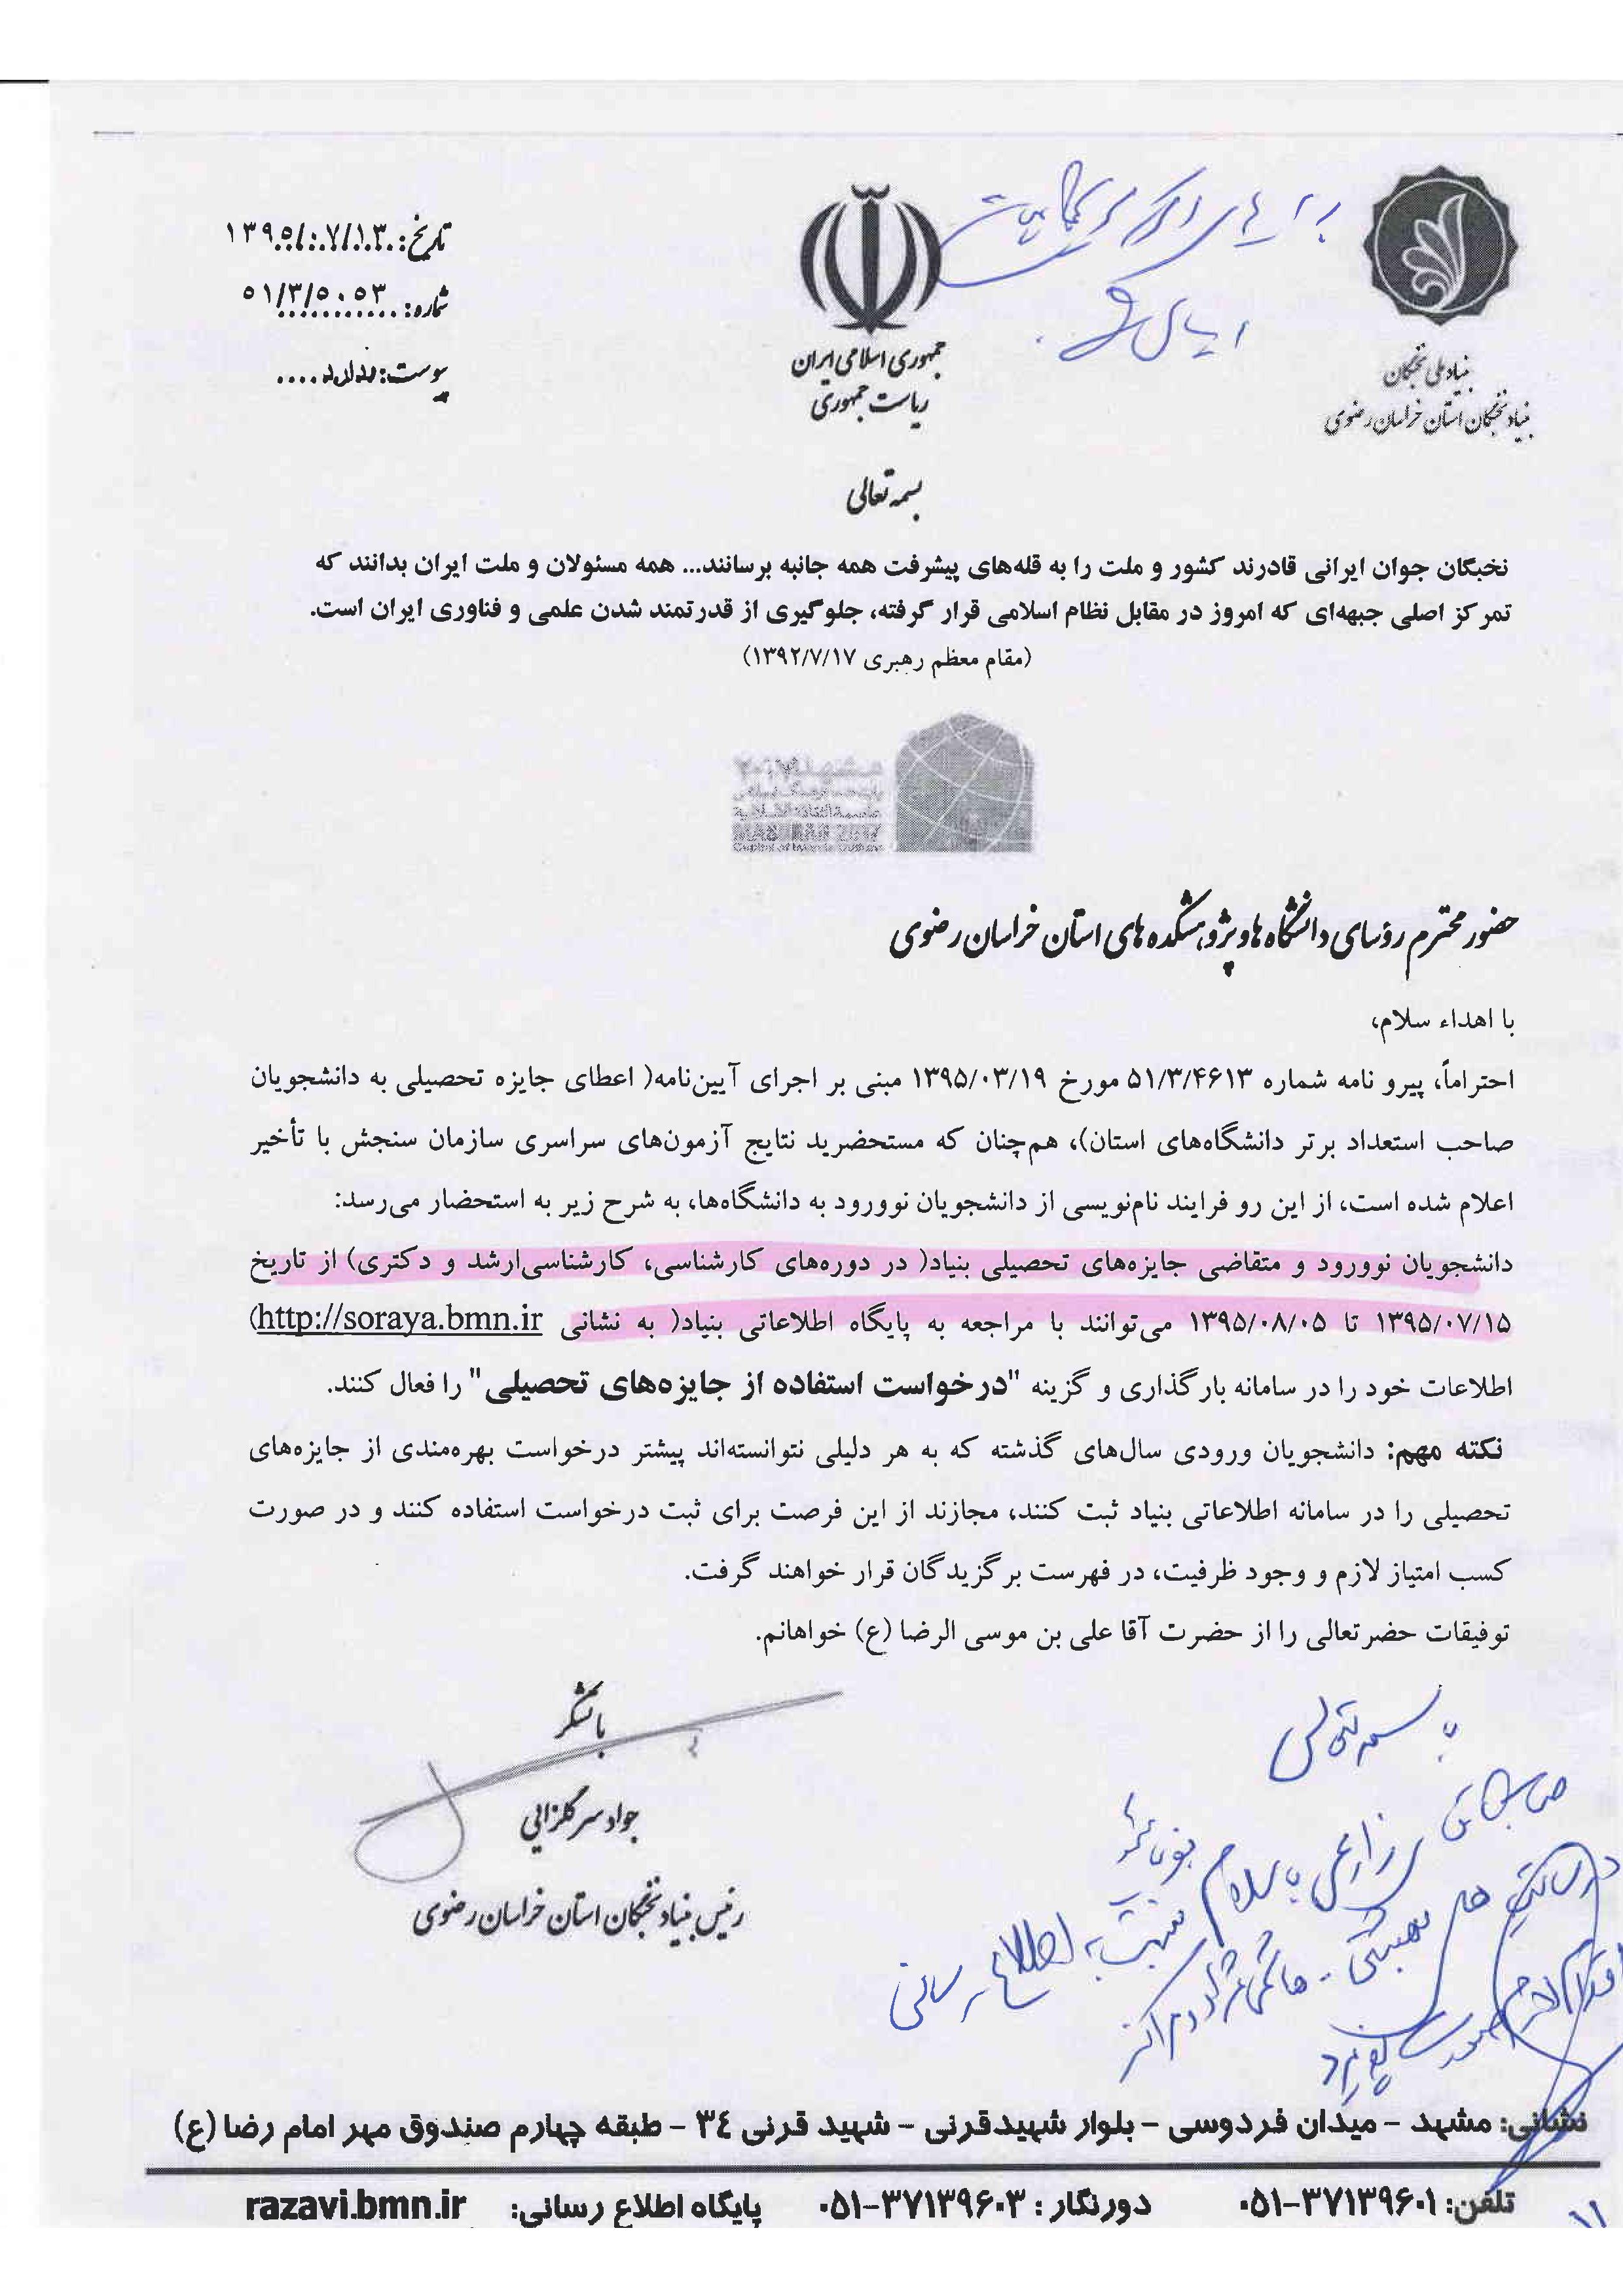 تاریخ: ۱۳۹۵/۰۷/۱۳
شماره: ۵۱/۳/۵۰۵۳
پیوست: ندارد
جمهوری اسلامی ایران
ریاست جمهوری
بنیاد ملی نخبگان
بنیاد نخبگان استان خراسان رضوی
بسمه تعالی
نخبگان جوان ایرانی قادرند کشور و ملت را به قله‌های پیشرفت همه جانبه برسانند... همه مسئولان و ملت ایران بدانند که
تمرکز اصلی جبهه‌ای که امروز در مقابل نظام اسلامی قرار گرفته، جلوگیری از قدرتمند شدن علمی و فناوری ایران است.
(مقام معظم رهبری ۱۳۹۲/۷/۱۷)
مشهد ۲۰۱۷
MASHHAD 2017
حضور محترم رؤسای دانشگاه ها و پژوهشکده های استان خراسان رضوی
با اهداء سلام،
احتراماً، پیرو نامه شماره ۵۱/۳/۴۶۱۳ مورخ ۱۳۹۵/۰۳/۱۹ مبنی بر اجرای آیین‌نامه( اعطای جایزه تحصیلی به دانشجویان
صاحب استعداد برتر دانشگاه‌های استان)، هم‌چنان که مستحضرید نتایج آزمون‌های سراسری سازمان سنجش با تأخیر
اعلام شده است، از این رو فرایند نام‌نویسی از دانشجویان نوورود به دانشگاه‌ها، به شرح زیر به استحضار می‌رسد:
دانشجویان نوورود و متقاضی جایزه‌های تحصیلی بنیاد( در دوره‌های کارشناسی، کارشناسی‌ارشد و دکتری) از تاریخ
۱۳۹۵/۰۷/۱۵ تا ۱۳۹۵/۰۸/۰۵ می‌توانند با مراجعه به پایگاه اطلاعاتی بنیاد( به نشانی http://soraya.bmn.ir)
اطلاعات خود را در سامانه بارگذاری و گزینه "درخواست استفاده از جایزه‌های تحصیلی" را فعال کنند.
نکته مهم: دانشجویان ورودی سال‌های گذشته که به هر دلیلی نتوانسته‌اند پیشتر درخواست بهره‌مندی از جایزه‌های
تحصیلی را در سامانه اطلاعاتی بنیاد ثبت کنند، مجازند از این فرصت برای ثبت درخواست استفاده کنند و در صورت
کسب امتیاز لازم و وجود ظرفیت، در فهرست برگزیدگان قرار خواهند گرفت.
توفیقات حضرتعالی را از حضرت آقا علی بن موسی الرضا (ع) خواهانم.
باتشکر
جواد سرگلزایی
رئیس بنیاد نخبگان استان خراسان رضوی
بسمه تعالی
با سلام
نسبت به اطلاع رسانی
نشانی: مشهد - میدان فردوسی - بلوار شهیدقرنی - شهید قرنی ۳۴ - طبقه چهارم صندوق مهر امام رضا (ع)
تلفن: ۳۷۱۳۹۶۰۱-۰۵۱ دورنگار : ۳۷۱۳۹۶۰۳-۰۵۱ پایگاه اطلاع رسانی: razavi.bmn.ir